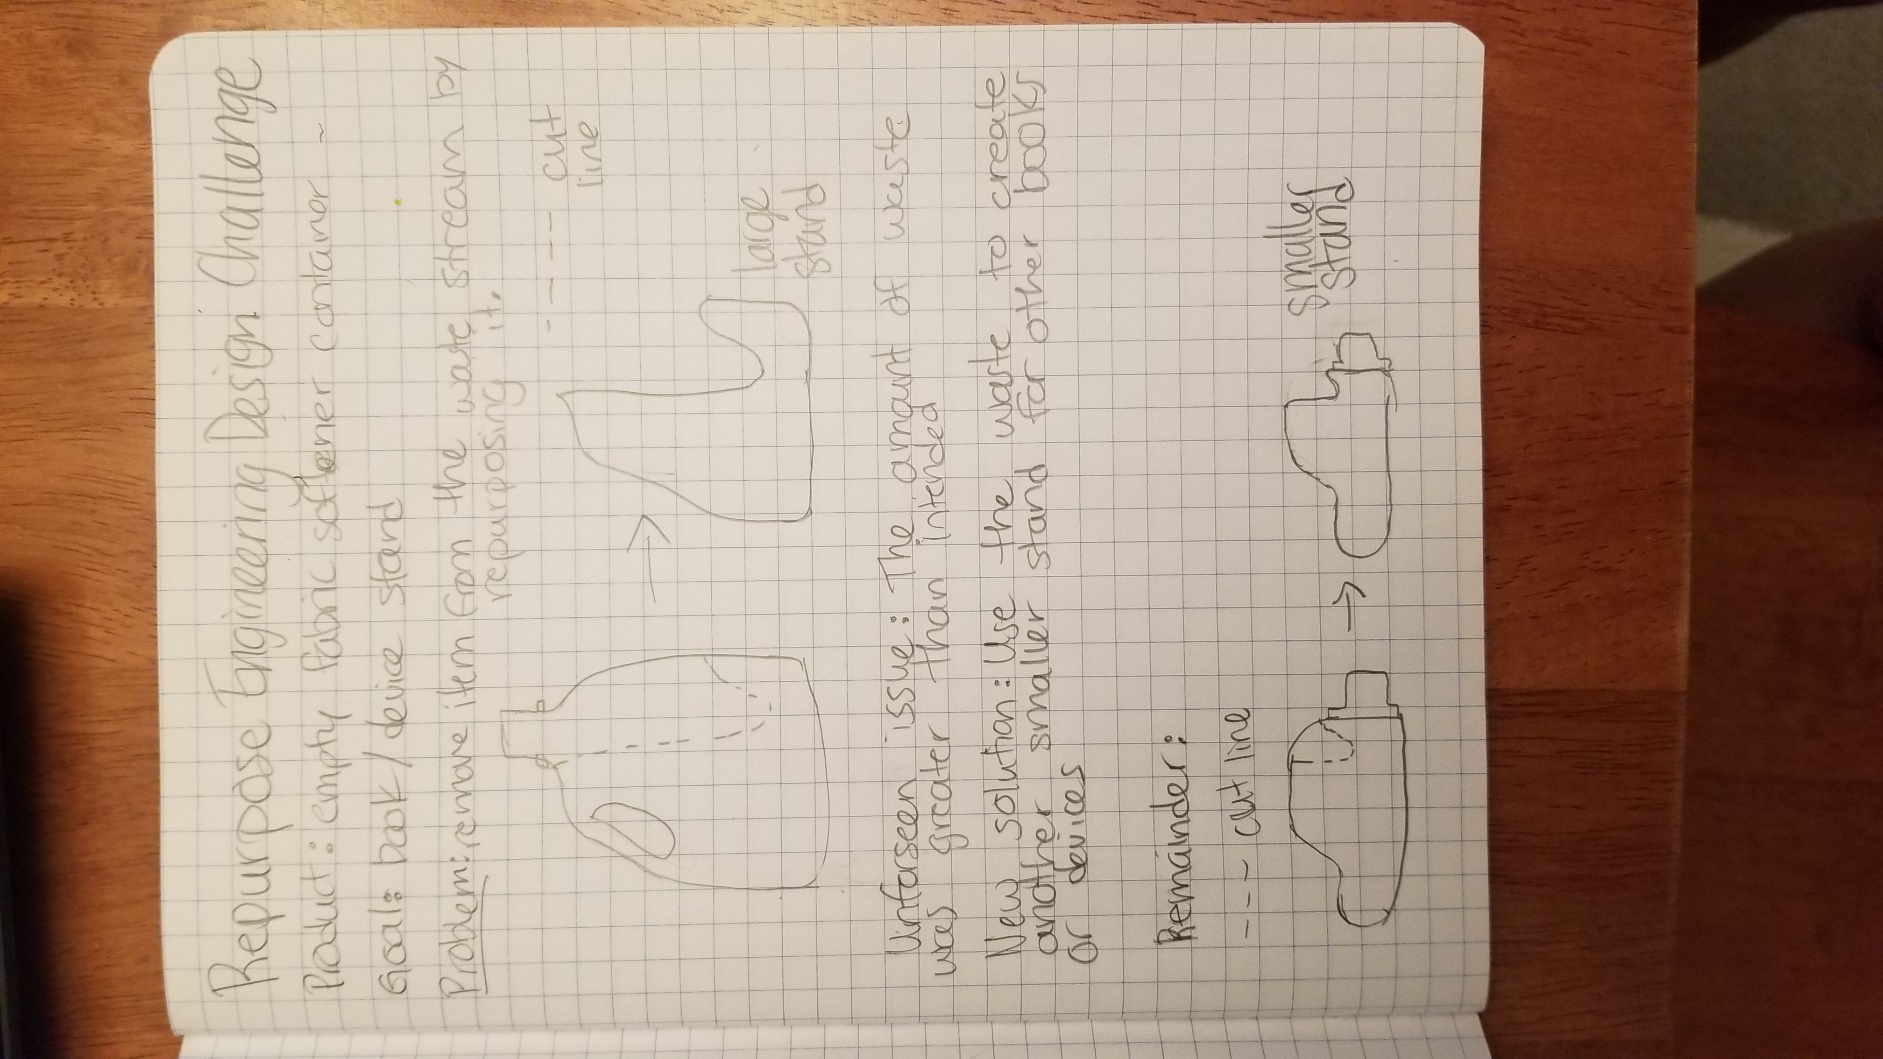 Repurpose Engineering Design Challenge
Product: empty fabric softener container ~
Goal: book/device stand
Problem: remove item from the waste stream by
repurposing it.
---- cut
line
large
stand
Unforseen issue: The amount of waste
was greater than intended
New solution: Use the waste to create
another smaller stand for other books
or devices
Remainder:
--- cut line
smaller
stand